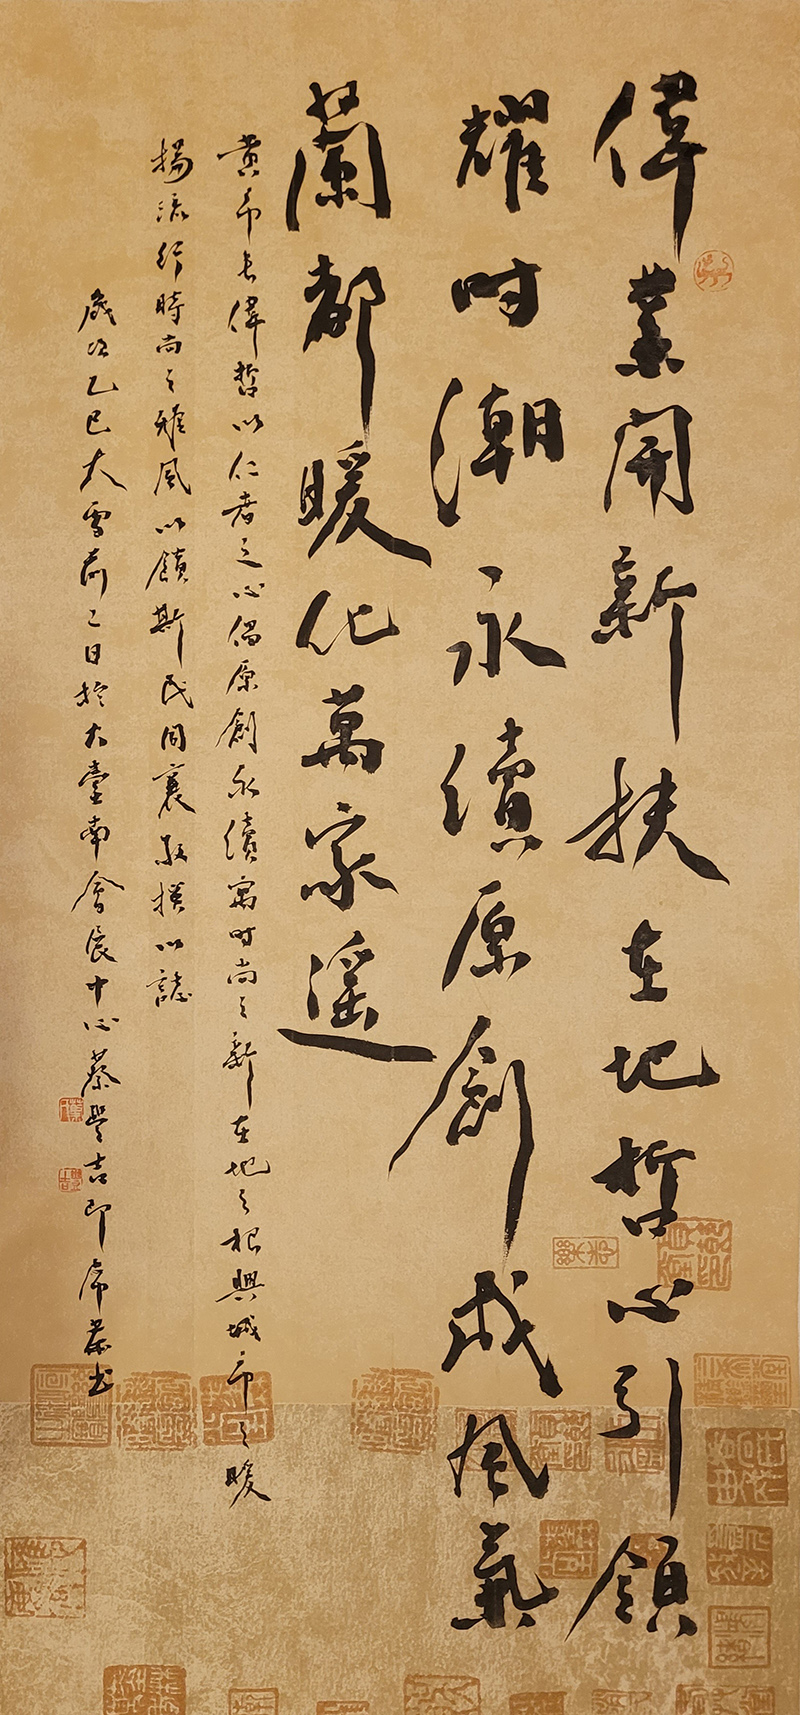 偉業開新扶在地哲心引領
耀时潮永續原創成风氣
蘭都暖化萬家遥
黄市长偉哲以仁者之心倡原創永續寓时尚之新在地之根興城市之暖
揚流行時尚之雅風以饋斯民同襄斯撰以誌
歲次乙巳大雪前二日於大臺南會展中心蔡豐吉即席恭书